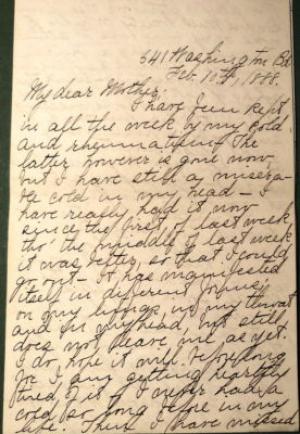 641 Washington Bd
Feb. 10th, 1888.
My dear Mother,
I have been kept
in all the week by my cold
and rheumatism. The
latter however is gone now
but I have still a misera-
ble cold in my head - I
have really had it now
since the first of last week
tho' the middle of last week
it was better, so that I could
go out - It has manifested
itself in different forms,
on my lungs, in my throat
and in my head, but still
does not leave me as yet.
I do hope it will before long
for I am getting heartily
tired of it. I never had a
cold so long before in my
life. Then I have missed